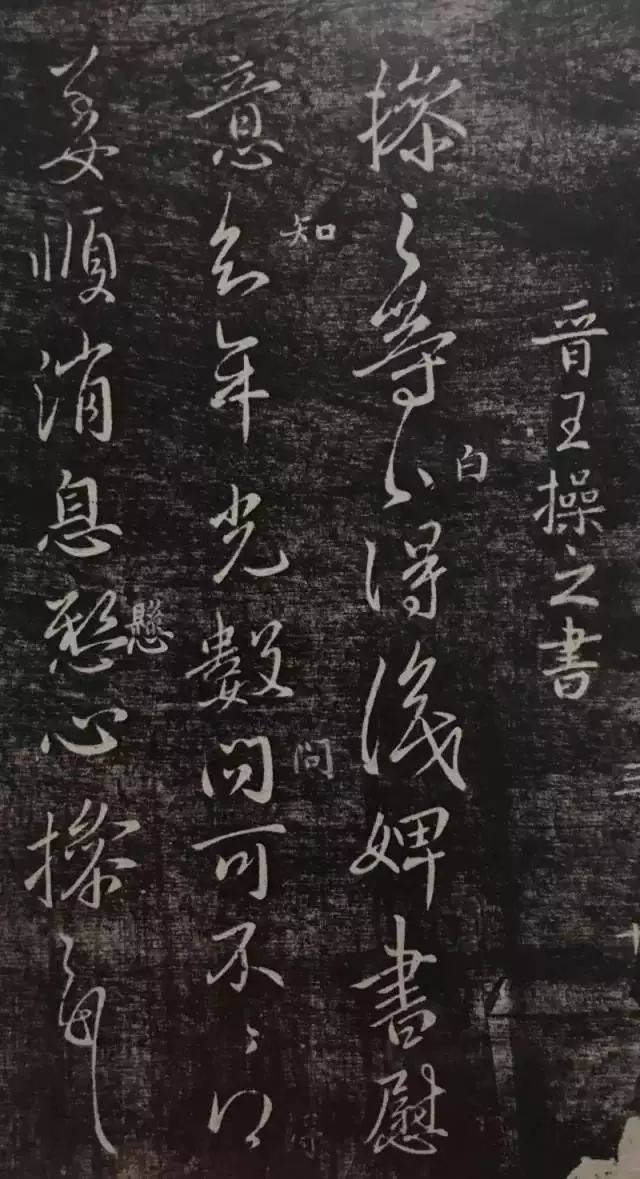 晉王操之書
操之等白得識婢書慰
白
意知年光數問可不〻得
知
問
姜順消息懸心操之等
懸